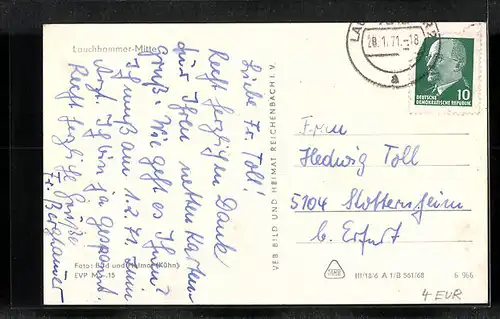 Lauchhammer-Mitte
Liebe Fr. Toll!
Recht herzlichen Dank
für Ihren netten Karten
gruß. Wie geht es Ihnen?
Ich muß am 1.2.71. zum
Arzt. Ich bin ja gespannt.
Recht herzliche Grüße
Fr. Berghauer
Foto: Bild und Heimat (Kühn)
EVP M -.15
VEB BILD UND HEIMAT REICHENBACH I. V.
LAU
20.1.71.-18
a
10
DEUTSCHE
DEMOKRATISCHE REPUBLIK
Frau
Hedwig Toll
5104 Stotternheim
b. Erfurt
III/18/6 A 1/B 561/68
6 966
4 EUR